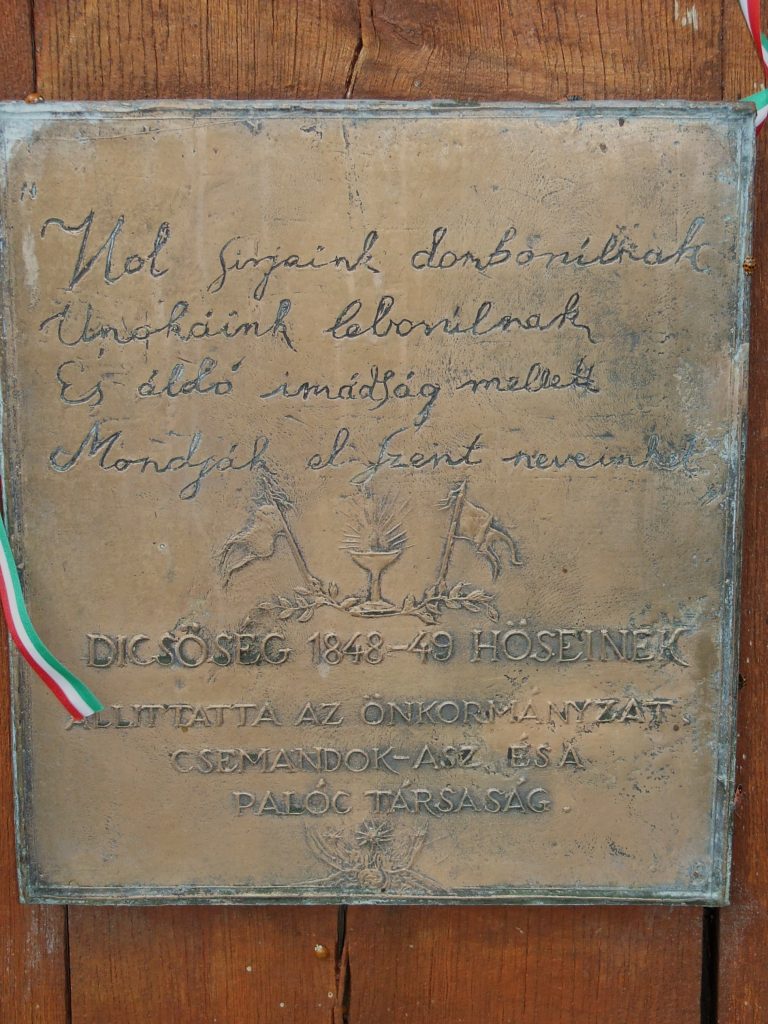 "Hol sirjaink domborúlnak
Unokáink leborúlnak
És áldó imádság mellett
Mondják el szent neveinket"
DICSŐSÉG 1848-49 HŐSEINEK
ÁLLITTATTA AZ ÖNKORMÁNYZAT,
CSEMANDOK-ASZ ÉS A
PALÓC TÁRSASÁG.